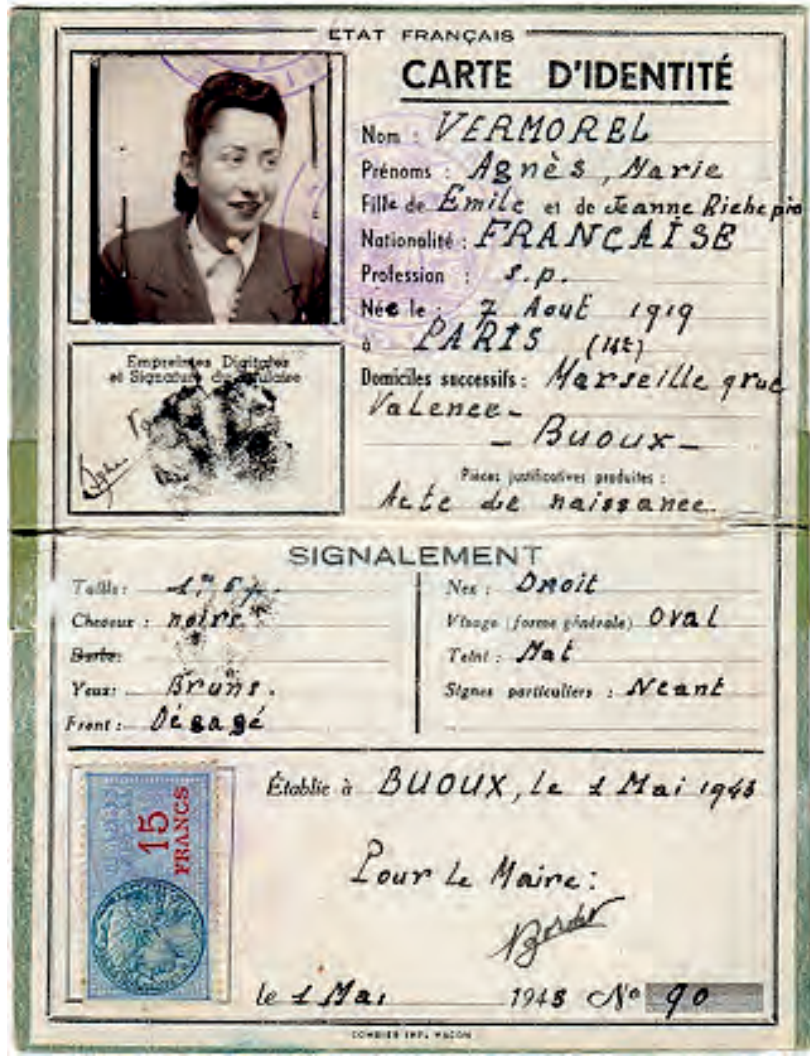 ETAT FRANÇAIS
CARTE D'IDENTITÉ
Nom : VERMOREL
Prénoms : Agnès, Marie
Fille de Emile et de Jeanne Richepin
Nationalité : FRANÇAISE
Profession : s.p.
Née le : 7 Aout 1919
à PARIS
Domiciles successifs : Marseille 9 rue
Valence -
- Buoux -
Pièces justificatives produites :
Acte de naissance.
Empreintes Digitales
et Signature du Titulaire
SIGNALEMENT
Taille :
Cheveux : noirs
Barbe:
Yeux: Bruns.
Front : Dégagé
Nez : Droit
Visage (forme générale) Oval
Teint : Mat
Signes particuliers : Néant
15
FRANCS
Établie à BUOUX, le 1 Mai 1943
Pour le Maire :
le 1 Mai 1943 No 90
COMBIER IMP. MACON